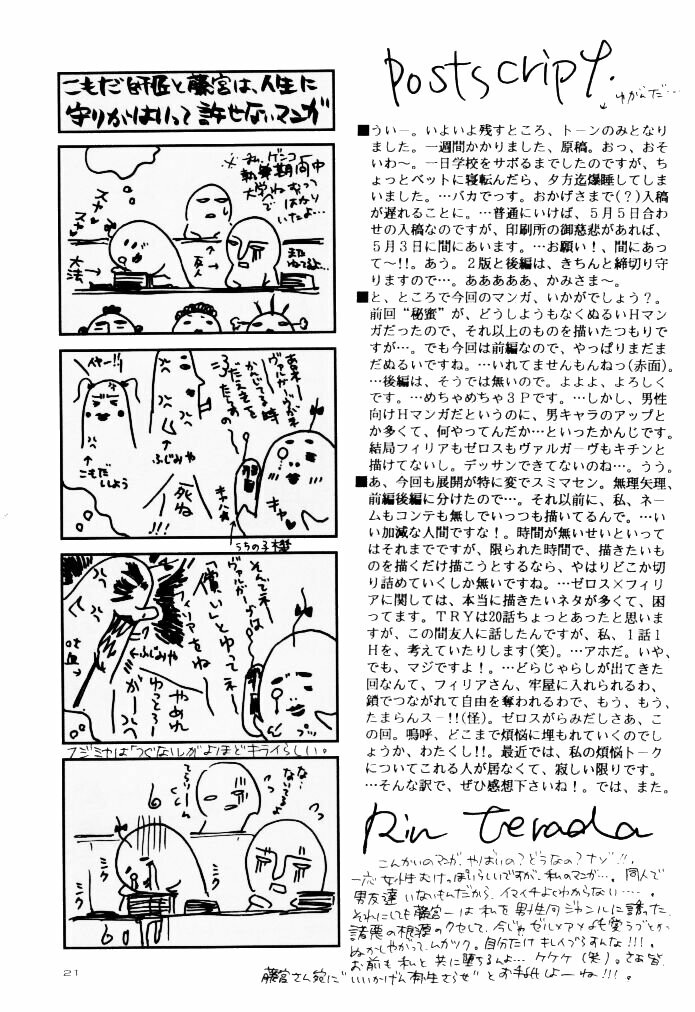 postscript.
ゆがんだ…
■うぃー。いよいよ残すところ、トーンのみとなり
ました。一週間かかりました、原稿。おっ、おそ
いわ〜。一日学校をサボるまでしたのですが、ち
ょっとベットに寝転んだら、夕方迄爆睡してしま
いました。…バカでっす。おかげさまで(？)入稿
が遅れることに。…普通にいけば、５月５日合わ
せの入稿なのですが、印刷所の御慈悲があれば、
５月３日に間にあいます。…お願い！、間にあっ
て〜!!。あう。２版と後編は、きちんと締切り守
りますので…。ああああぁ、かみさま〜。
■と、ところで今回のマンガ、いかがでしょう？。
前回“秘蜜”が、どうしようもなくぬるいＨマン
ガだったので、それ以上のものを描いたつもりで
すが…。でも今回は前編なので、やっぱりまだま
だぬるいですね。…いれてませんもんねっ(赤面)。
…後編は、そうでは無いので。よよよ、よろしく
です。…めちゃめちゃ３Ｐです。…しかし、男性
向けＨマンガだというのに、男キャラのアップと
か多くて、何やってんだか…といったかんじです。
結局フィリアもゼロスもヴァルガーヴもキチンと
描けてないし。デッサンできてないのね…。うう。
■あ、今回も展開が特に変でスミマセン。無理矢理、
前編後編に分けたので…。それ以前に、私、ネー
ムもコンテも無しでいっつも描いてるんで。…い
い加減な人間ですな！。時間が無いせいといって
はそれまでですが、限られた時間で、描きたいも
のを描くだけ描こうとするなら、やはりどこか切
り詰めていくしか無いですね。…ゼロス×フィリ
アに関しては、本当に描きたいネタが多くて、困
ってます。ＴＲＹは20話ちょっとあったと思いま
すが、この間友人に話したんですが、私、１話１
Ｈを、考えていたりします(笑)。…アホだ。いや、
でも、マジですよ！。…どらじゃらしが出てきた
回なんて、フィリアさん、牢屋に入れられるわ、
鎖でつながれて自由を奪われるわで、もう、もう、
たまらんスー!!(怪)。ゼロスがらみだしさあ、こ
の回。嗚呼、どこまで煩悩に埋もれていくのでし
ょうか、わたくし!!。最近では、私の煩悩トーク
についてこれる人が居なくて、寂しい限りです。
…そんな訳で、ぜひ感想下さいね！。では、また。
Rin terada
こんかいのマンガ、やばいの？どうなの？ナゾ!!。
一応女性むけっぽいらしいですが、私のマンガ…。同人で
男友達いないもんだから、イマイチよくわからない…。
それにしても藤宮ーは私を男性向ジャンルに誘った
諸悪の根源のクセして、今じゃゼルアメも愛うづとか
ぬかしやがって、ムカツク。自分だけキレイづらすんな!!!。
お前も私と共に堕ちるんよ…ケケケ(笑)。さぁ皆、
藤宮さん宛に“いいかげん有生さらせ”とお手紙しよーね!!!。
こもだ師匠と藤宮は、人生に
守りがはいって許せないマンガ
私、ゲンコ
執筆期間中
大学ねむって
ばかり
いたよ…
スヤ
スヤ
大法
友人
まだ
ねてるよ…
ヴァルガーヴが
かんじてる時
キャハハ
キャ♥
うちの子機
ふじみや
こもだ
いしょう
死ね
!!!
そんでネー
ヴァルガーヴは
「償い」とゆってネー
フィリアをね
ふじみや
吐血
やめれ
ゆっとろー
がーっ
フジミヤは「つぐない」がよほどキライらしい。
な…
ないてるよ
ミク
ミク
ミク
21